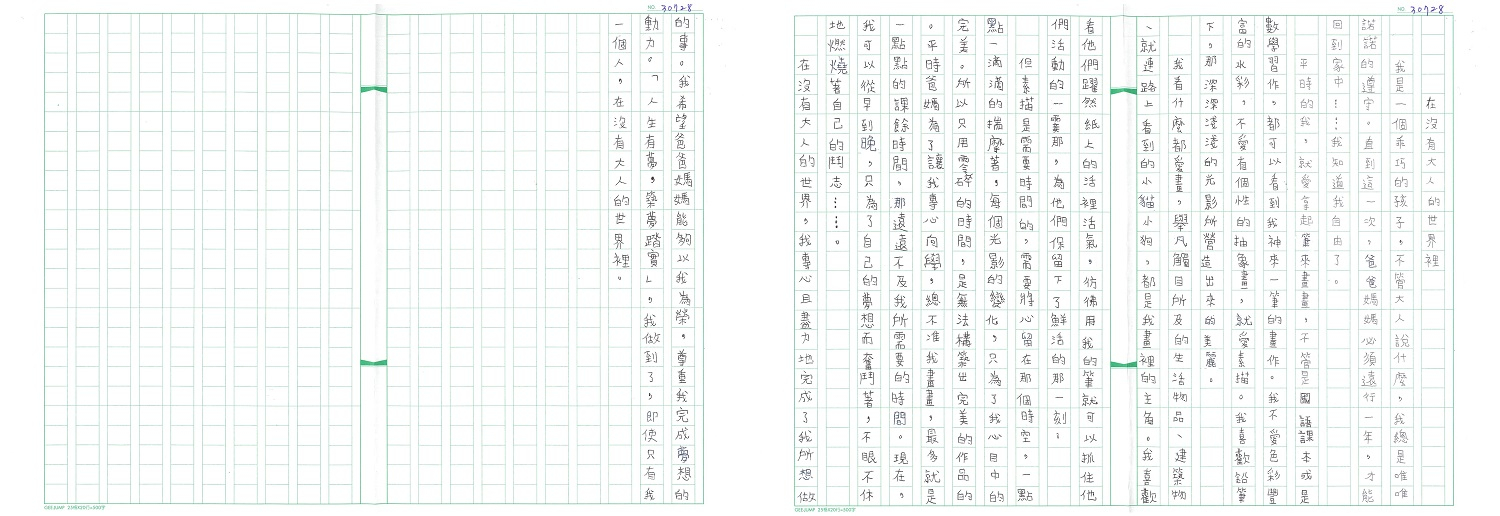 NO. 30728
在沒有大人的世界裡
我是一個乖巧的孩子，不管大人說什麼，我總是唯唯
諾諾的遵守。直到這一次，爸爸媽媽必須遠行一年，才能
回到家中……我知道我自由了。
平時的我，就愛拿起筆來畫畫，不管是國語課本或是
數學習作，都可以看到我神來一筆的畫作。我不愛色彩豐
富的水彩，不愛有個性的抽象畫，就愛素描。我喜歡鉛筆
下，那深深淺淺的光影所營造出來的美麗。
我看什麼都愛畫，舉凡觸目所及的生活物品、建築物
、就連路上看到的小貓小狗，都是我畫裡的主角。我喜歡
看他們躍然紙上的活裡活氣，彷彿用我的筆就可以抓住他
們活動的一霎那，為他們保留下了鮮活的那一刻；
但素描是需要時間的，需要將心留在那個時空，一點
點一滴滴的揣摩著，每個光影的變化，只為了我心目中的
完美。所以只用零碎的時間，是無法構築出完美的作品的
。平時爸媽為了讓我專心向學，總不准我畫畫，最多就是
一點點的課餘時間，那遠遠不及我所需要的時間。現在，
我可以從早到晚，只為了自己的夢想而奮鬥著，不眠不休
地燃燒著自己的鬥志……。
在沒有大人的世界，我專心且盡力地完成了我所想做
GEEJUMP 25行X20行=500字
NO. 30728
的事。我希望爸爸媽媽能夠以我為榮，尊重我完成夢想的
動力。「人生有夢，築夢踏實」，我做到了，即使只有我
一個人，在沒有大人的世界裡。
GEEJUMP 25行X20行=500字